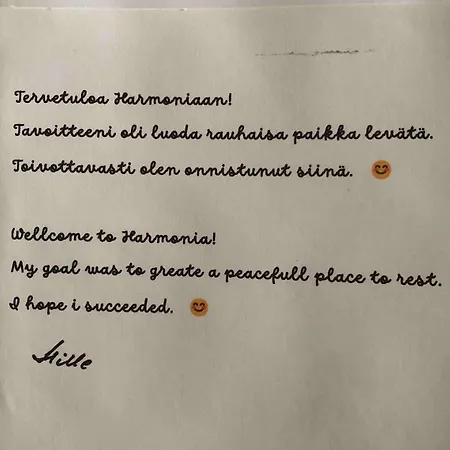 Tervetuloa Harmoniaan!
Tavoitteeni oli luoda rauhaisa paikka levätä.
Toivottavasti olen onnistunut siinä. 😊
Wellcome to Harmonia!
My goal was to greate a peacefull place to rest.
I hope i succeeded. 😊